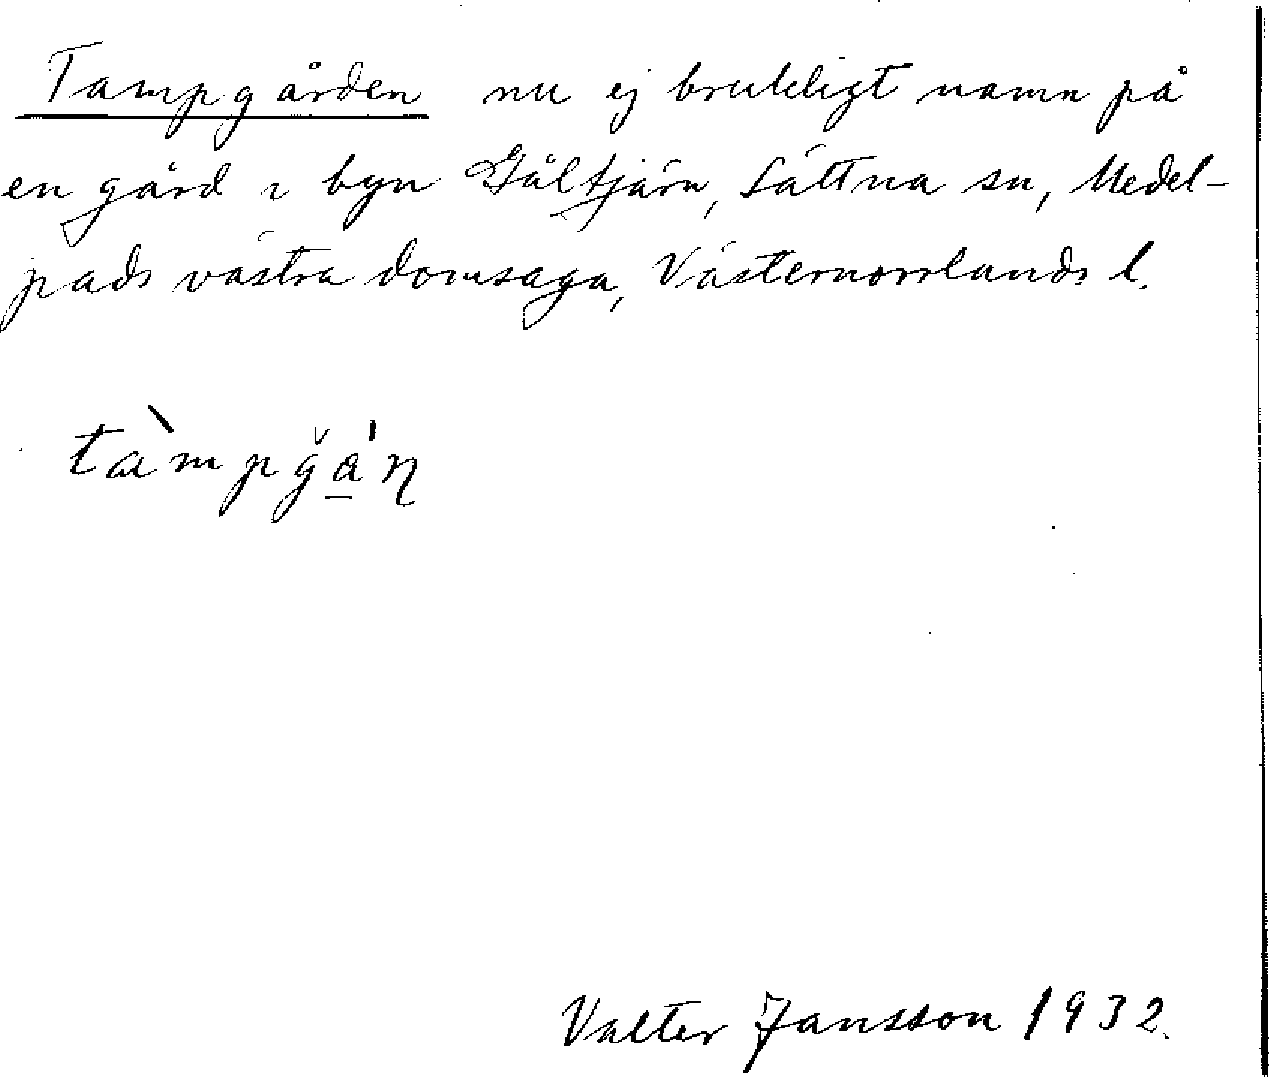 Tampgården nu ej brukligt namn på
en gård i byn Gåltjärn, Sättna sn, Medel-
pads västra domsaga, Västernorrlands l.
tàmpgǻn
Valter Jansson 1932.